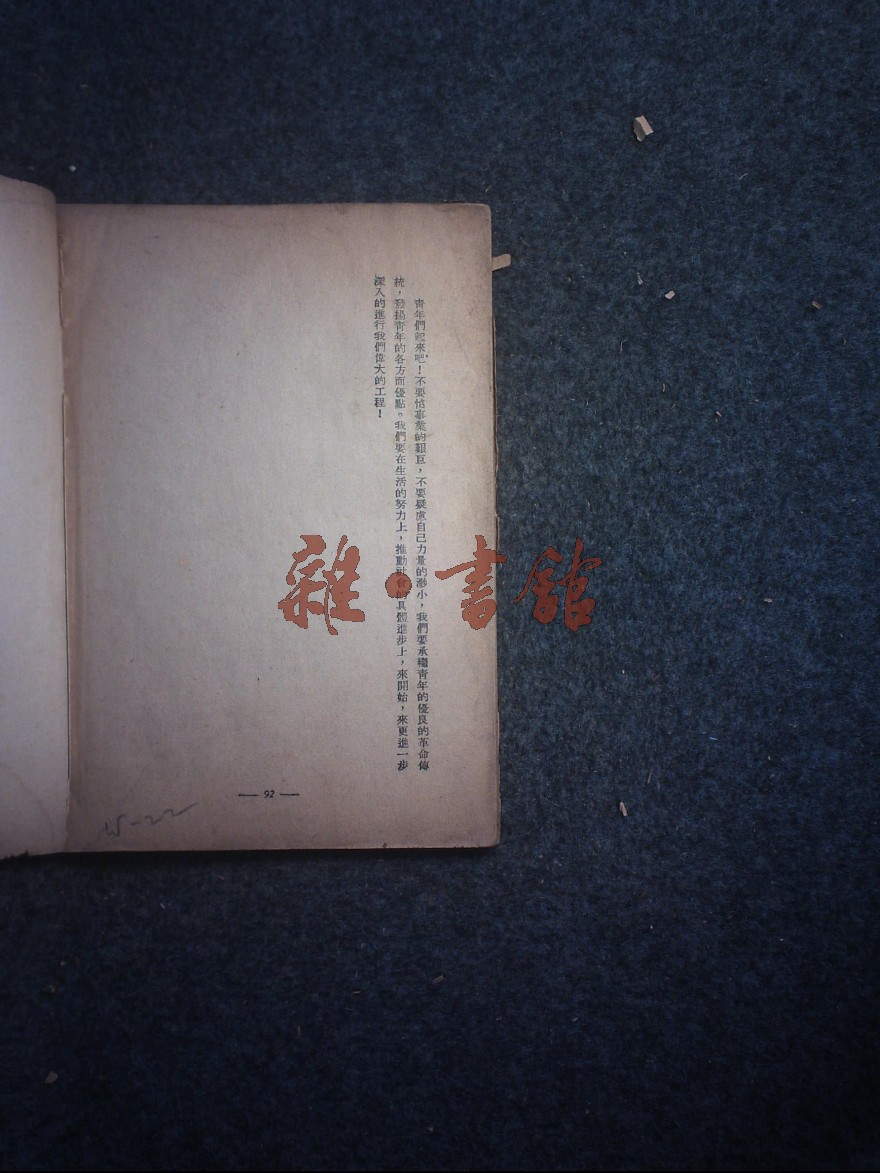 青年們起來吧！不要怕事業的艱巨，不要疑慮自己力量的渺小，我們要承繼青年的優良的革命傳
統，發揚青年的各方面優點。我們要在生活的努力上，推動社會的具體進步上，來開始，來更進一步
深入的進行我們偉大的工程！
雜·書館
— 92 —
15-22